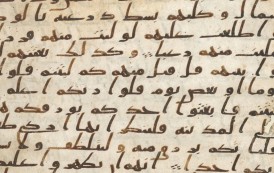 وكلبهم بسط ذرعيه بالو
اطلعت عليهم لوليت منهم فرر
منهم رعبا وكذلك بعثنهم
بينهم قل قيل منهم كم لبثتم قلوا
يوما او بعض يوم قلوا ربكم اعلم
فابعثوا احدكم بورقكم هذه
المدينة فلينظر ايها ازكى ط
برزق منه وليتلطف ولا
بكم احدا انهم ان يظهروا عليكم